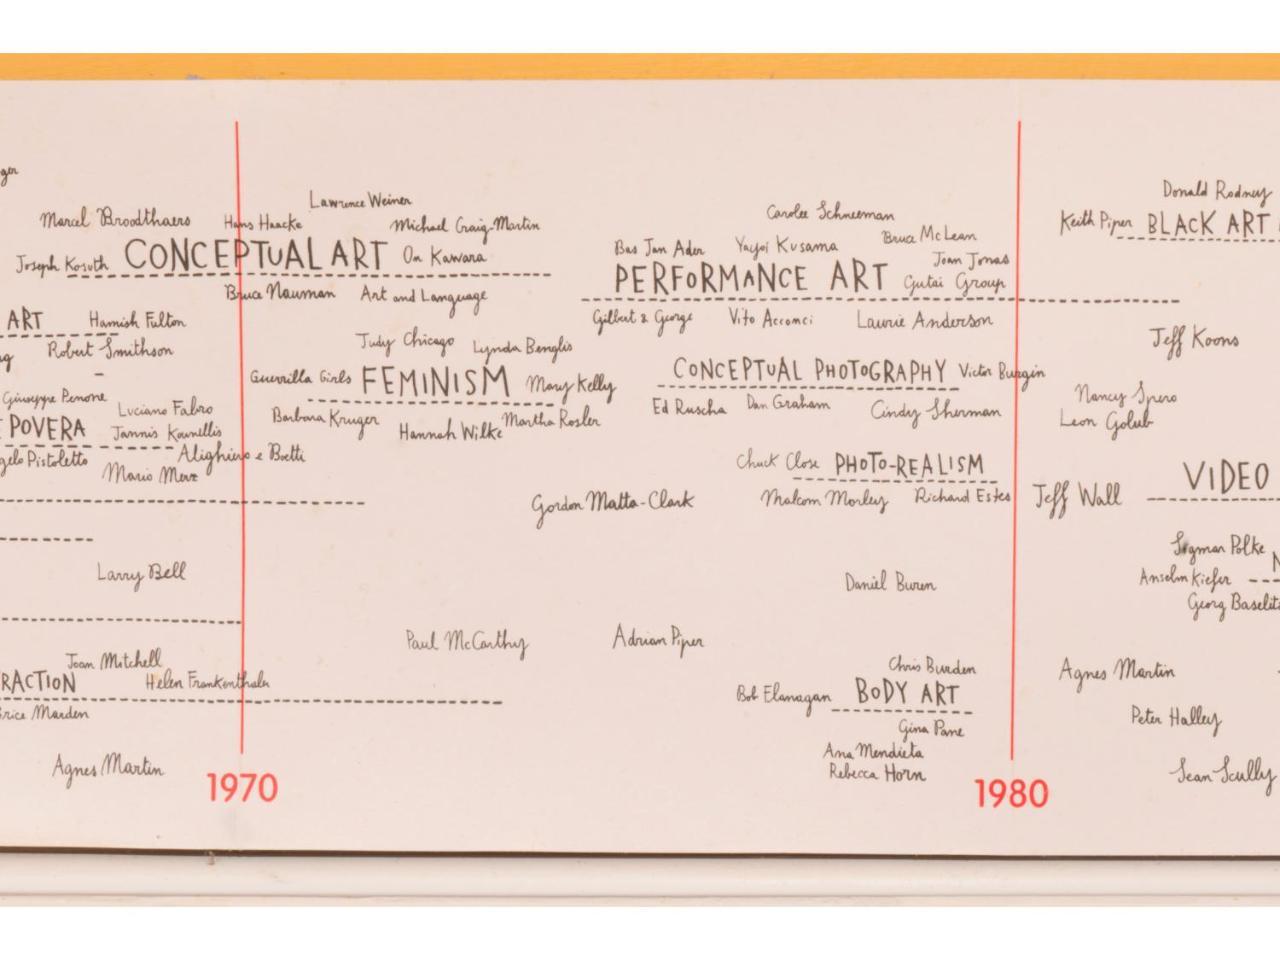 Donald Rodney
Lawrence Weiner
Marcel Broodthaers Hans Haacke Michael Craig-Martin
Carolee Schneeman
Keith Piper BLACK ART
Joseph Kosuth CONCEPTUAL ART On Kawara
Bruce Nauman Art and Language
Bas Jan Ader Yayoi Kusama Bruce McLean
Joan Jonas
PERFORMANCE ART Gutai Group
Gilbert & George Vito Acconci Laurie Anderson
ART Hamish Fulton
Robert Smithson
Judy Chicago Lynda Benglis
Guerrilla Girls FEMINISM Mary Kelly
Barbara Kruger Hannah Wilke Martha Rosler
CONCEPTUAL PHOTOGRAPHY Victor Burgin
Ed Ruscha Dan Graham Cindy Sherman
Jeff Koons
Nancy Spero
Leon Golub
Giuseppe Penone
Luciano Fabro
POVERA Jannis Kounellis
Pistoletto Alighiero e Boetti
Mario Merz
Chuck Close PHOTO-REALISM
Malcom Morley Richard Estes
Jeff Wall
VIDEO
Gordon Matta-Clark
Sigmar Polke
Anselm Kiefer
Georg Baselitz
Larry Bell
Daniel Buren
Paul McCarthy Adrian Piper
Joan Mitchell
RACTION Helen Frankenthaler
Brice Marden
Agnes Martin
Chris Burden
Bob Flanagan BODY ART
Gina Pane
Ana Mendieta
Rebecca Horn
Agnes Martin
Peter Halley
Sean Scully
1970
1980